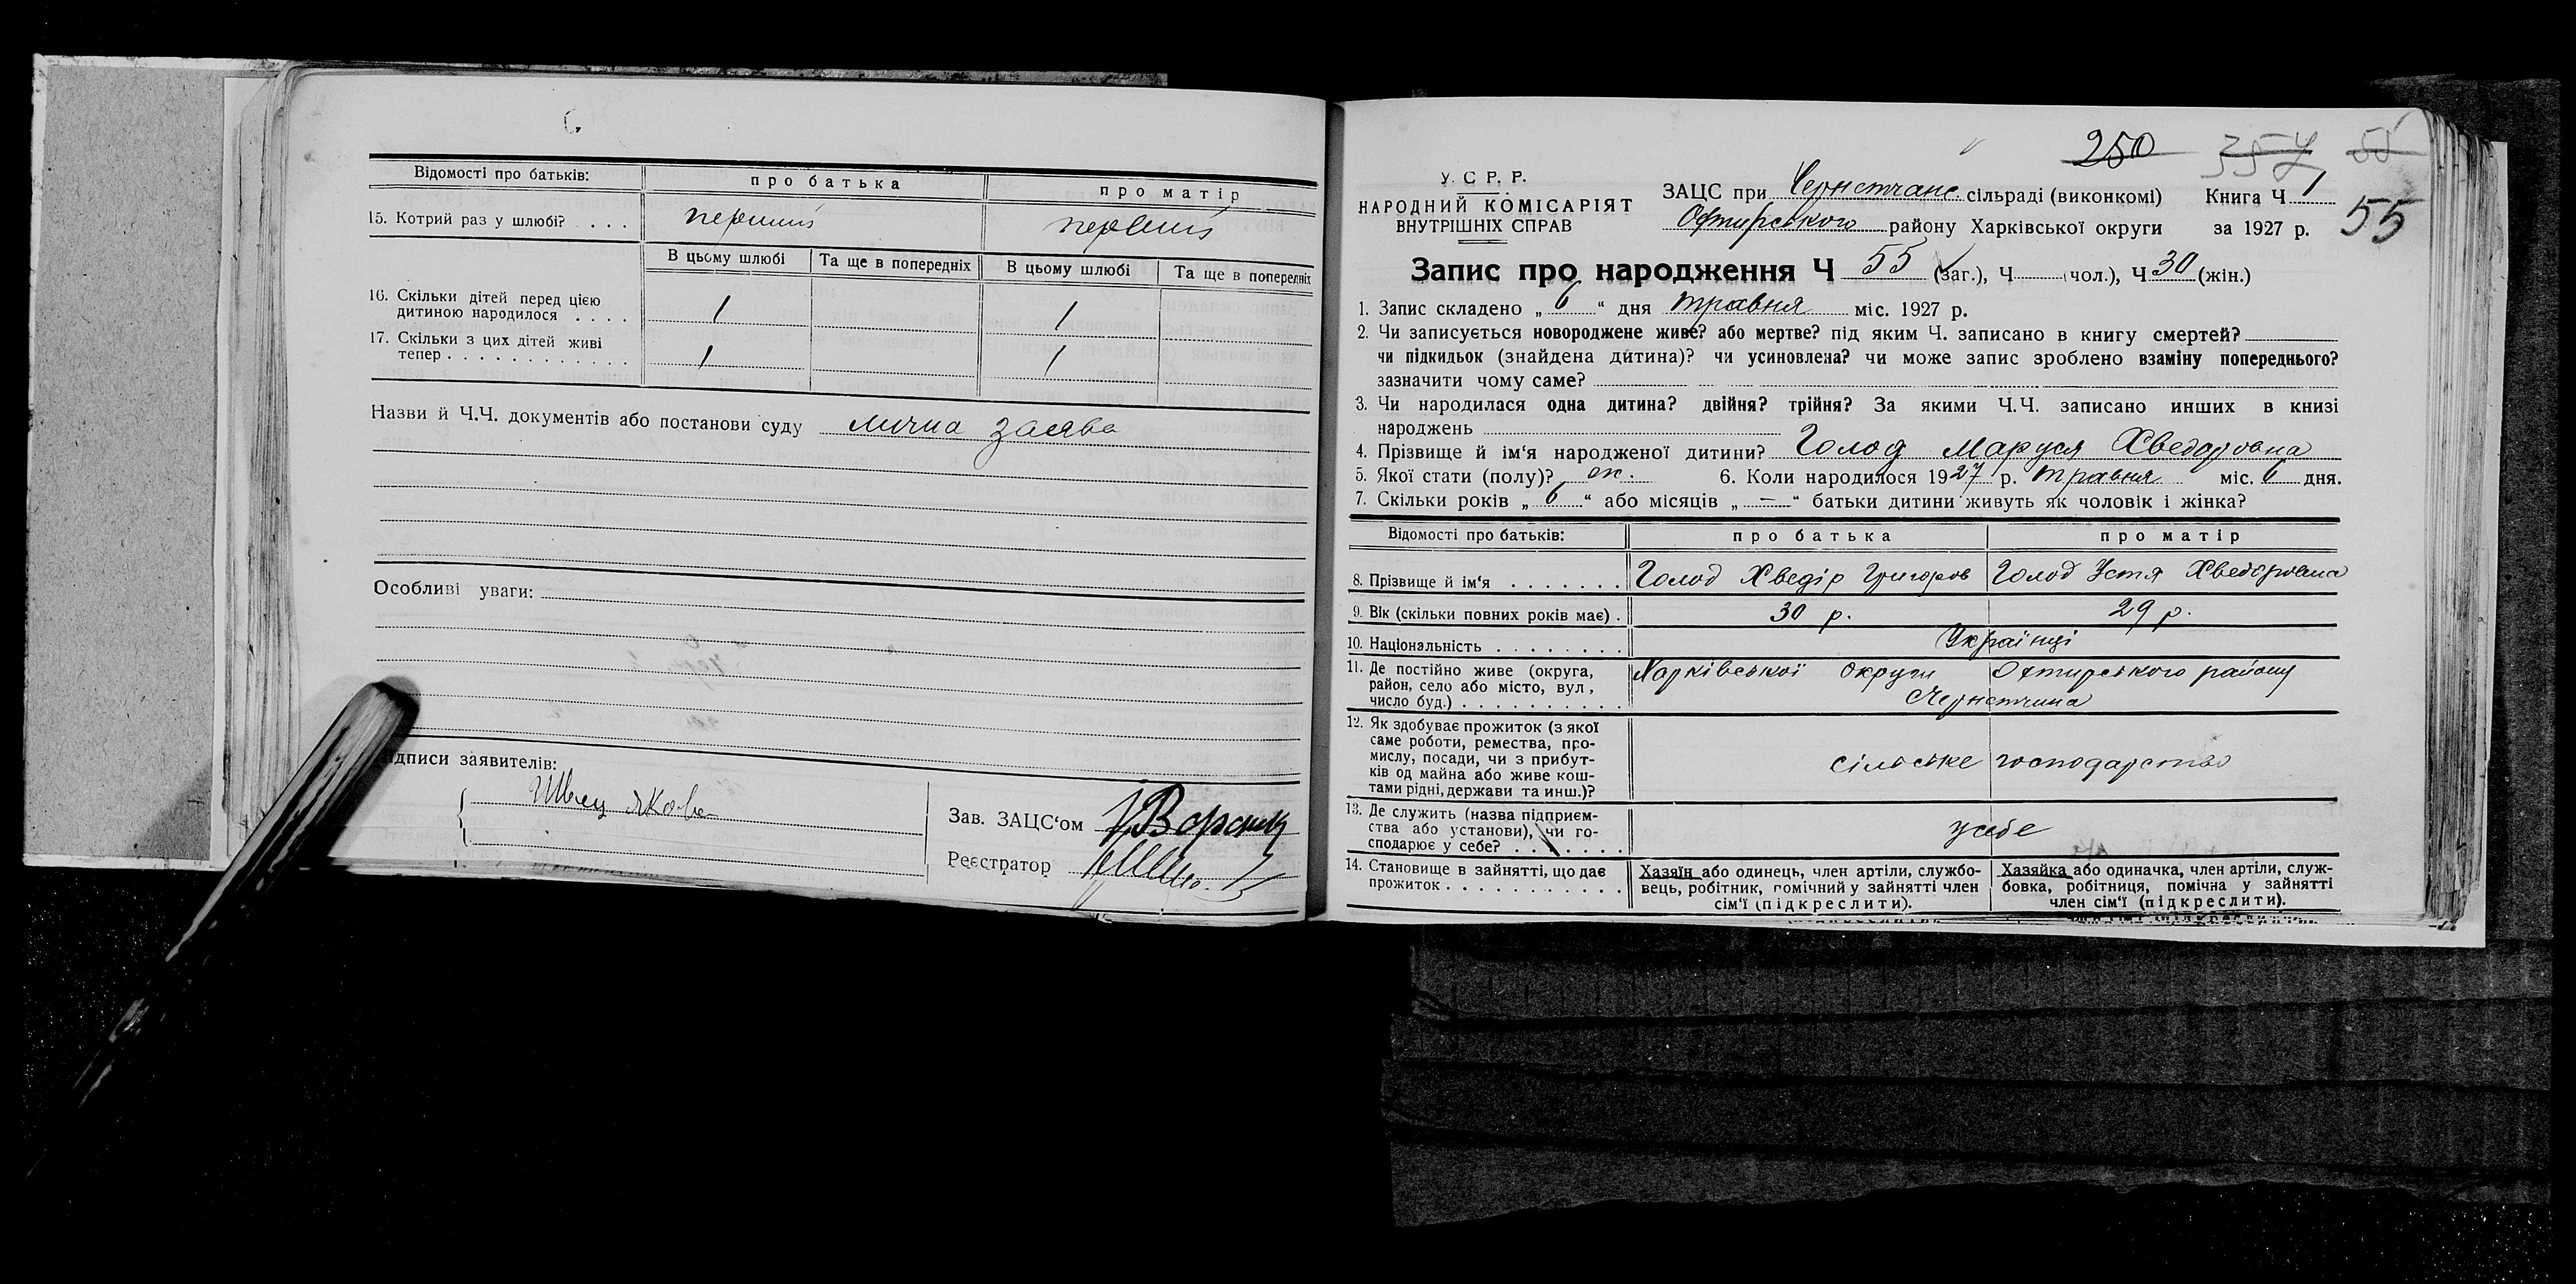 Відомості про батьків: про батька про матір
15. Котрий раз у шлюбі? . . . . первий первий
В цьому шлюбі Та ще в попередніх В цьому шлюбі Та ще в попередніх
16. Скільки дітей перед цією
дитиною народилося . . . . 1 1
17. Скільки з цих дітей живі
тепер . . . . . . . . . . . . 1 1
Назви й Ч.Ч. документів або постанови суду лична заява
Особливі уваги:
ідписи заявителів:
Швец Якова
Зав. ЗАЦС‘ом
Реєстратор
250 357 55
У. С. Р. Р.
НАРОДНИЙ КОМІСАРІЯТ
ВНУТРІШНІХ СПРАВ
ЗАЦС при Чернетчанс. сільраді (виконкомі) Книга Ч 1
Охтирського району Харківської округи за 1927 р. 55
Запис про народження Ч 55 (заг.), Ч (чол.), Ч 30 (жін.)
1. Запис складено „ 6 “ дня травня міс. 1927 р.
2. Чи записується новороджене живе? або мертве? під яким Ч. записано в книгу смертей?
чи підкидьок (знайдена дитина)? чи усиновлена? чи може запис зроблено взаміну попереднього?
зазначити чому саме?
3. Чи народилася одна дитина? двійня? трійня? За якими Ч.Ч. записано инших в книзі
народжень
4. Прізвище й ім‘я народженої дитини? Голод Маруся Хведоровна
5. Якої стати (полу)? ж. 6. Коли народилося 1927 р. травня міс. 6 дня.
7. Скільки років „ 6 “ або місяців „ — “ батьки дитини живуть як чоловік і жінка?
Відомості про батьків: про батька про матір
8. Прізвище й ім‘я . . . . . . . Голод Хведір Григоров Голод Устя Хведоровна
9. Вік (скільки повних років має) . 30 р. 29 р.
10. Національність . . . . . . . . Українці
11. Де постійно живе (округа, Харківської округи Охтирського району
район, село або місто, вул., Чернетчина
число буд.) . . . . . . . . . .
12. Як здобуває прожиток (з якої
саме роботи, ремества, про-
мислу, посади, чи з прибут- сільське господарство
ків од майна або живе кош-
тами рідні, держави та инш.)?
13. Де служить (назва підприєм-
ства або установи), чи го- у себе
сподарює у себе? . . . . . . .
14. Становище в зайнятті, що дає
прожиток . . . . . . . . . . . .
Хазяїн або одинець, член артіли, службо-
вець, робітник, помічний у зайнятті член
сім‘ї (підкреслити).
Хазяйка або одиначка, член артіли, служ-
бовка, робітниця, помічна у зайнятті
член сім‘ї (підкреслити).